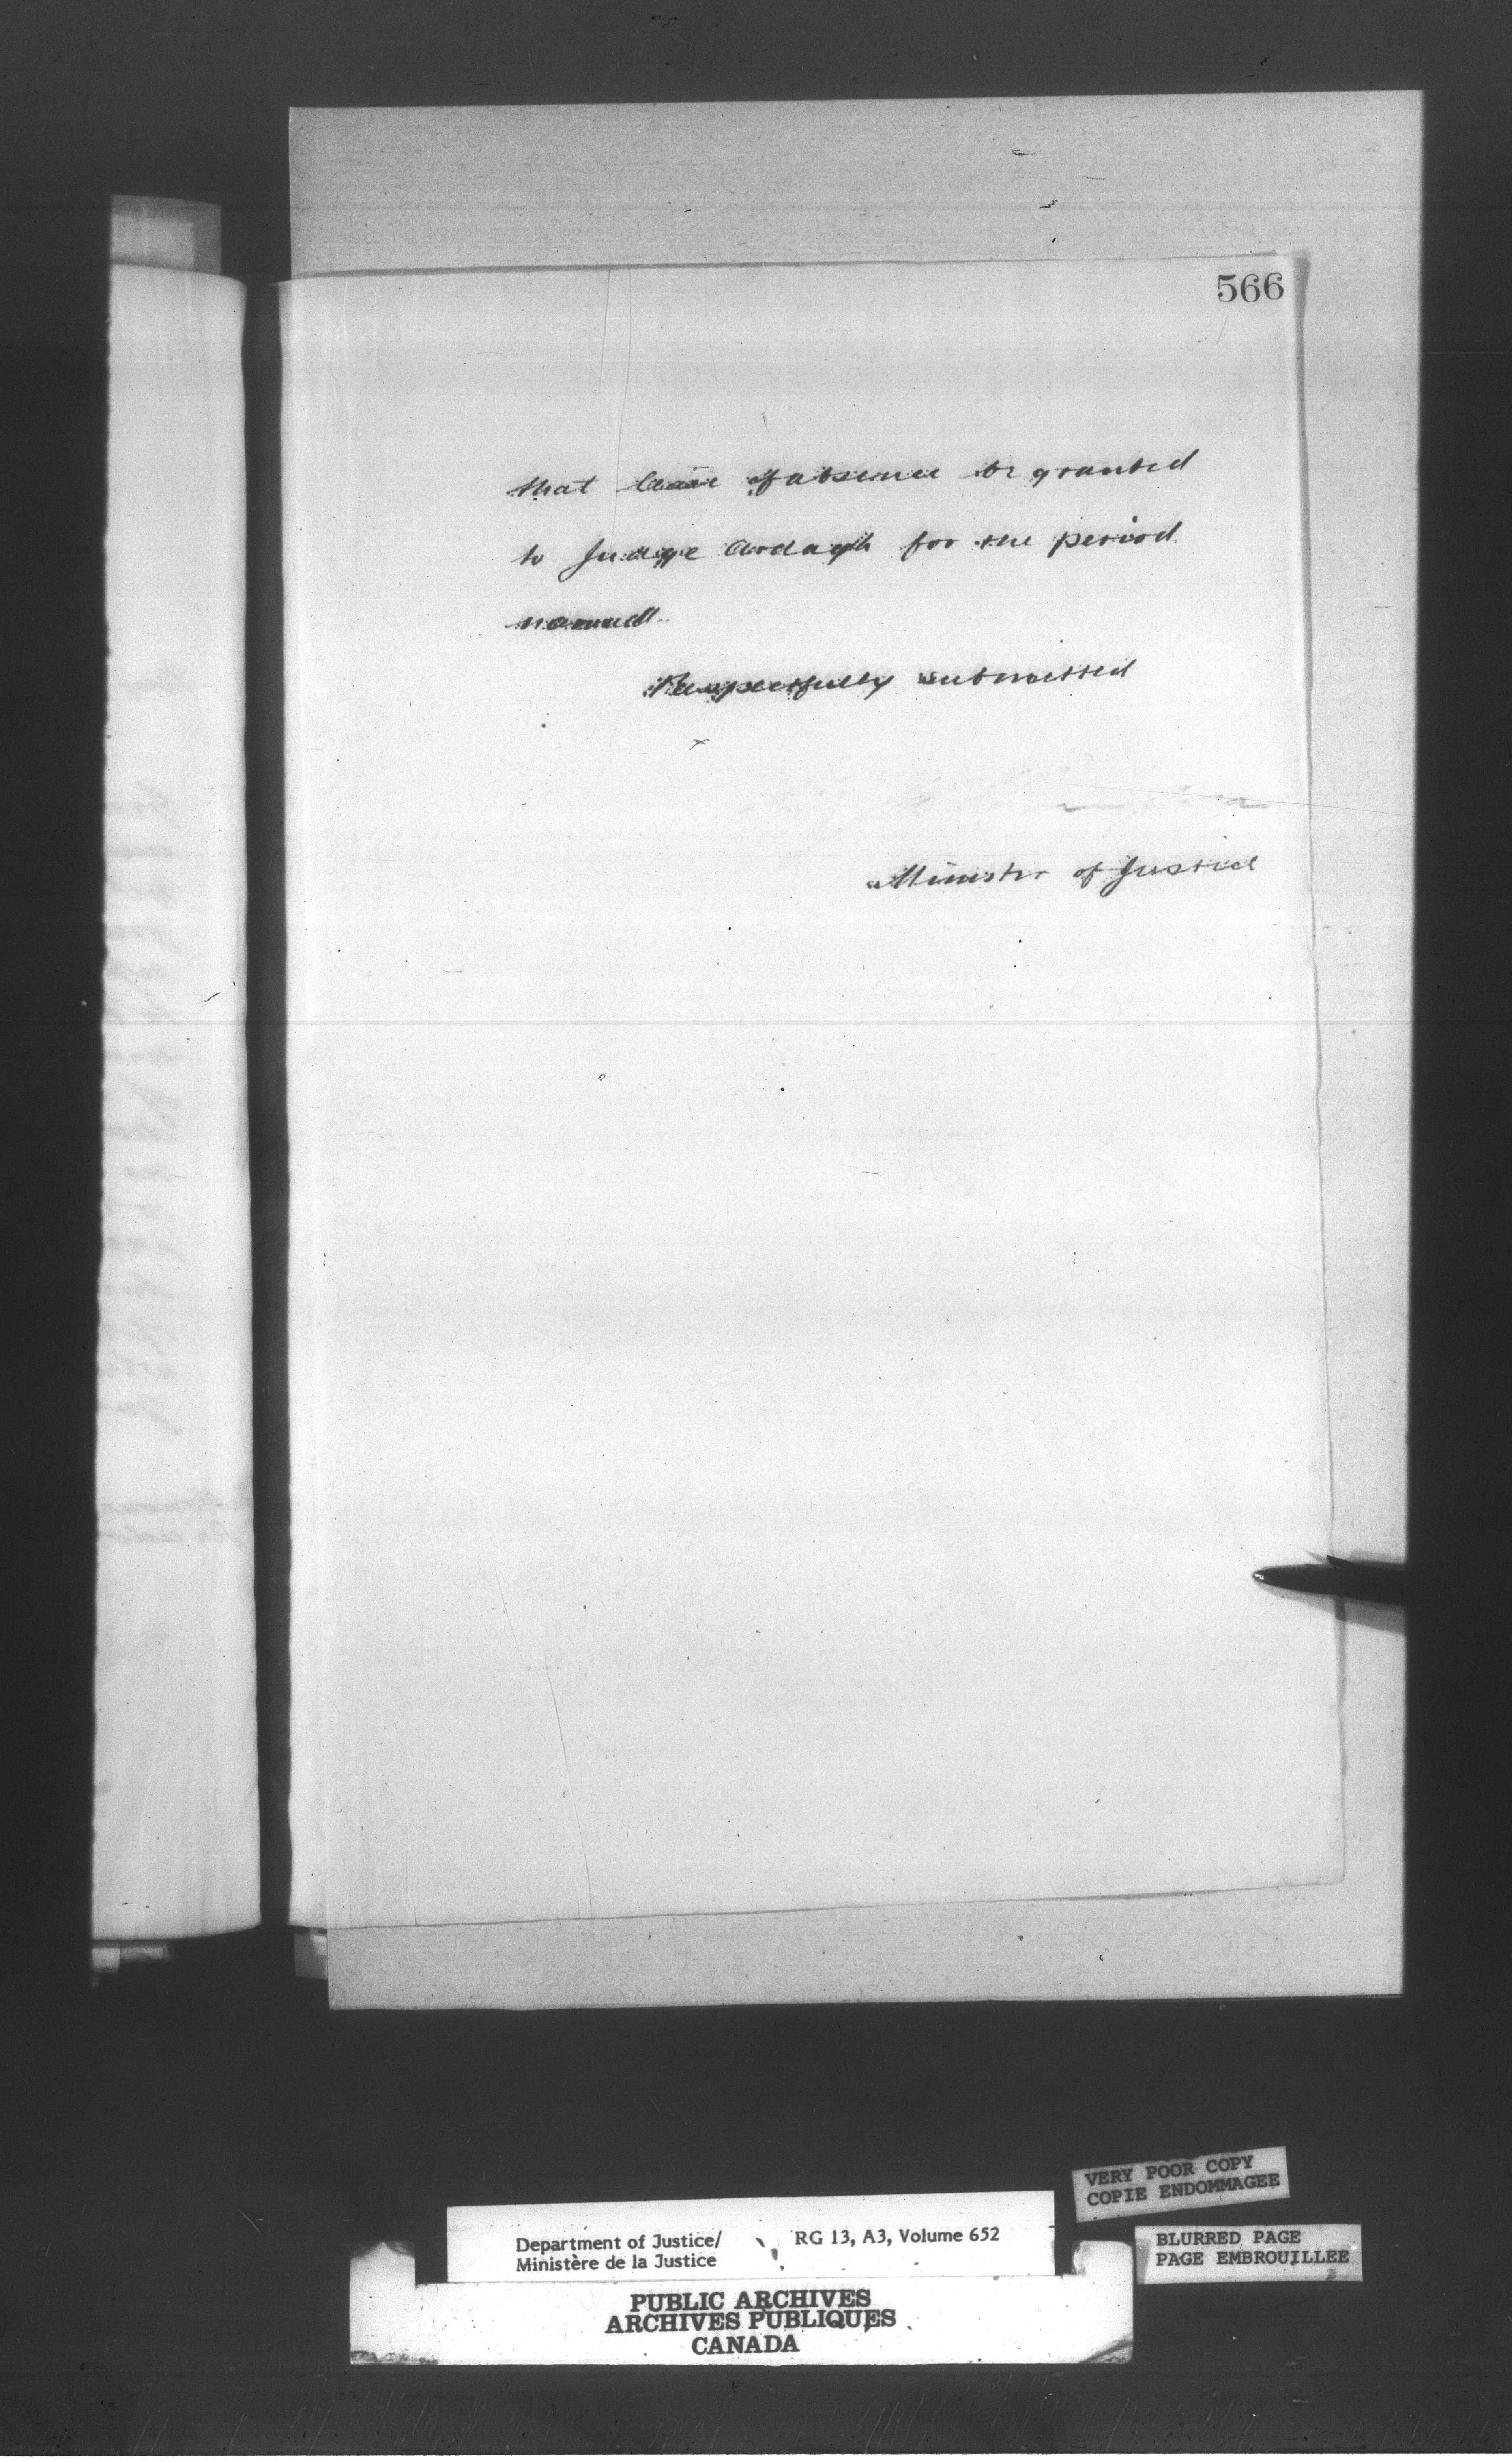 566
that leave of absence be granted
to Judge Ardagh for the period
named.
Respectfully submitted
Minister of Justice
VERY POOR COPY
COPIE ENDOMMAGEE
Department of Justice/
Ministère de la Justice
RG 13, A3, Volume 652
BLURRED PAGE
PAGE EMBROUILLEE
PUBLIC ARCHIVES
ARCHIVES PUBLIQUES
CANADA